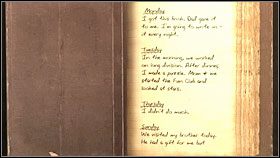 Monday
I got this book. Dad gave it
to me. I'm going to write in
it every night.
Tuesday
In the morning, we worked
on long division. After dinner,
I made a puzzle. Mom &  we
started the Fan Club and
looked at stars.
Thursday
I didn't do much.
Sunday
We visited my brother today.
He had a gift for me but